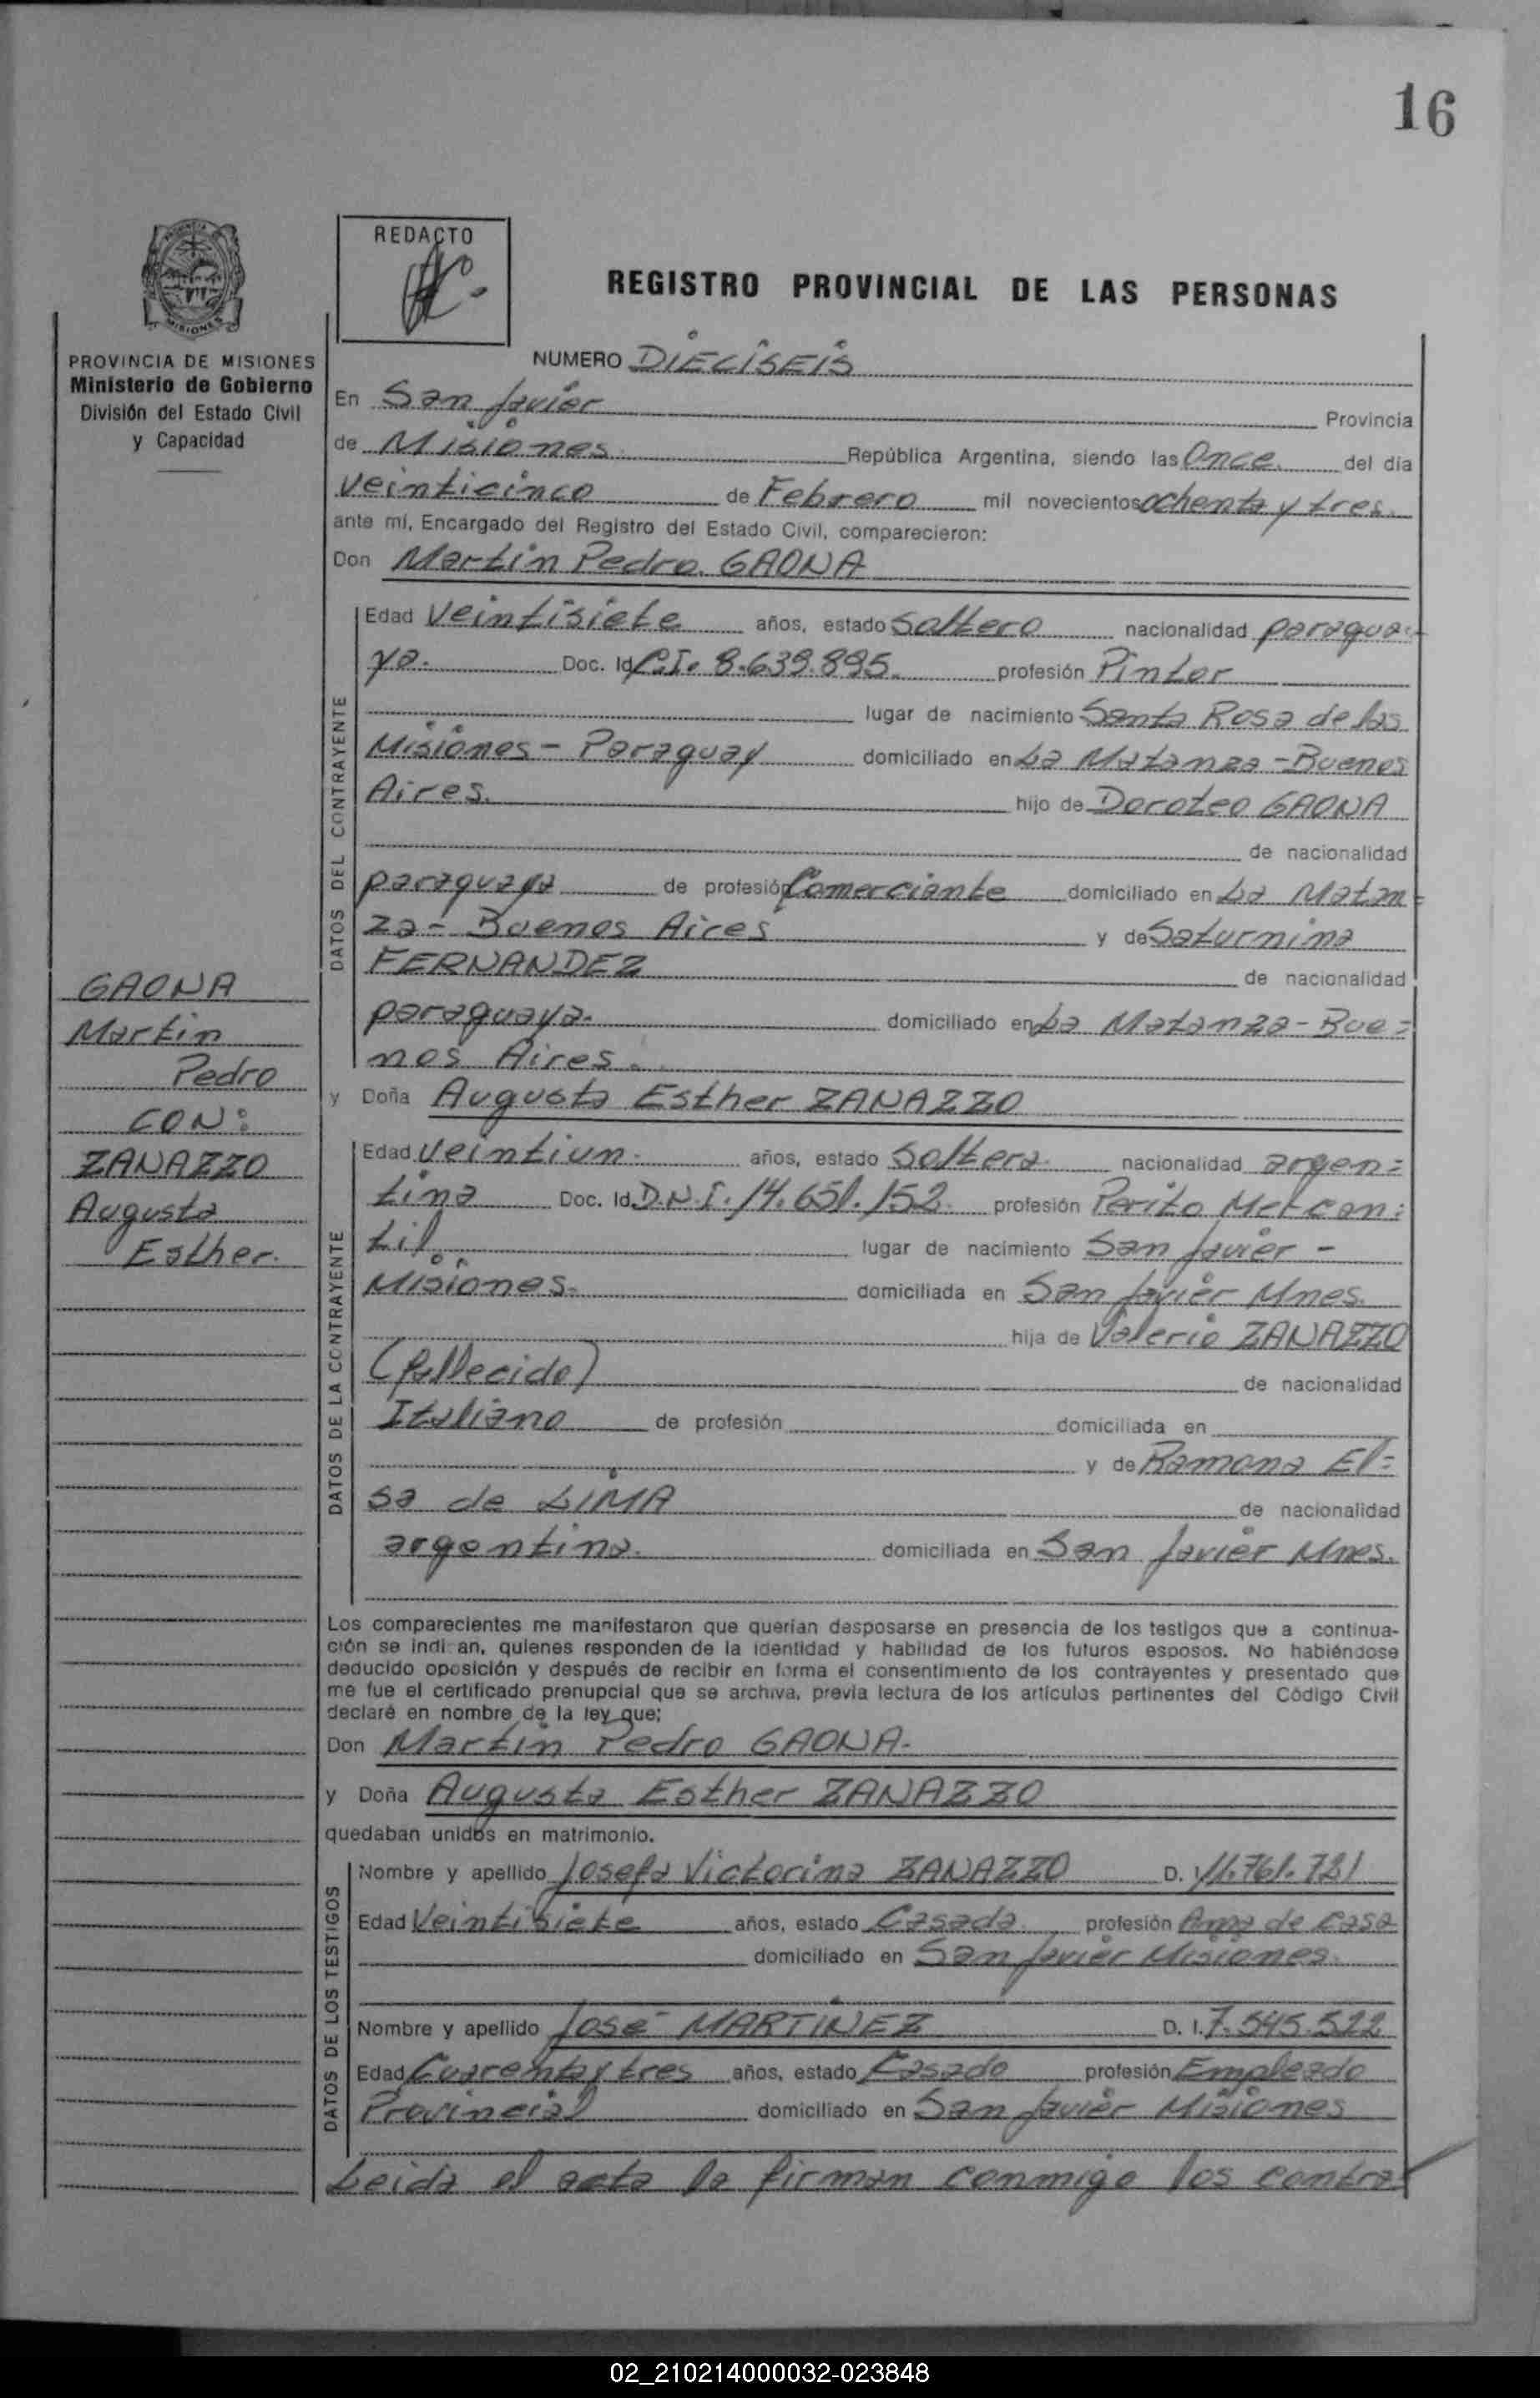 16
REDACTO
REGISTRO PROVINCIAL DE LAS PERSONAS
MISIONES
PROVINCIA DE MISIONES
Ministerio de Gobierno
División del Estado Civil
y Capacidad
NUMERO DIECISEIS
En San Javier Provincia
de Misiones República Argentina, siendo las Once del día
veinticinco de Febrero mil novecientos ochenta y tres.
ante mí, Encargado del Registro del Estado Civil, comparecieron:
Don Martin Pedro GAONA
DATOS DEL CONTRAYENTE
Edad veintisiete años, estado soltero nacionalidad paragua-
ya. Doc. Id C.I. 8.639.895. profesión Pintor
lugar de nacimiento Santa Rosa de las
Misiones - Paraguay domiciliado en La Matanza - Buenos
Aires. hijo de Doroteo GAONA
de nacionalidad
paraguaya de profesión Comerciante domiciliado en La Matan=
za - Buenos Aires y de Saturnina
FERNANDEZ de nacionalidad
paraguaya. domiciliado en La Matanza - Bue=
nos Aires.
GAONA
Martin
Pedro
CON:
ZANAZZO
Augusta
Esther.
y Doña Augusta Esther ZANAZZO
DATOS DE LA CONTRAYENTE
Edad veintiun. años, estado Soltera. nacionalidad argen=
tina Doc. Id. D.N.I. 14.651.152. profesión Perito Mercan=
til. lugar de nacimiento San Javier -
Misiones. domiciliada en San Javier Mnes.
hija de Valerio ZANAZZO
(fallecido) de nacionalidad
Italiano de profesión domiciliada en
y de Ramona El=
sa de LIMA de nacionalidad
argentina. domiciliada en San Javier Mnes.
Los comparecientes me manifestaron que querían desposarse en presencia de los testigos que a continua-
ción se indi an, quienes responden de la identidad y habilidad de los futuros esposos. No habiéndose
deducido oposición y después de recibir en forma el consentimiento de los contrayentes y presentado que
me fue el certificado prenupcial que se archiva, previa lectura de los artículos pertinentes del Código Civil
declaré en nombre de la ley que:
Don Martin Pedro GAONA.
y Doña Augusta Esther ZANAZZO
quedaban unidos en matrimonio.
DATOS DE LOS TESTIGOS
Nombre y apellido Josefa Victorina ZANAZZO D. I 11.761.721
Edad Veintisiete años, estado Casada. profesión Ama de casa
domiciliado en San Javier Misiones.
Nombre y apellido José MARTINEZ D. I. 7.545.522
Edad Cuarenta y tres años, estado Casado profesión Empleado
Provincial domiciliado en San Javier Misiones
Leida el acta la firman conmigo los contra-
02_210214000032-023848